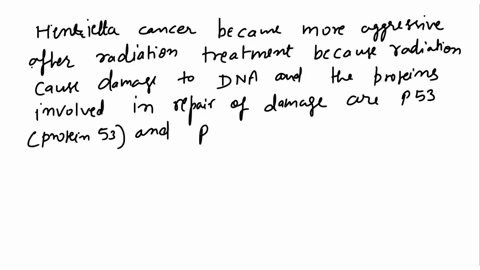 Henrietta cancer became more aggressive
after radiation treatment because radiation
cause damage to DNA and the proteins
involved in repair of damage are p53
(protein 53) and p